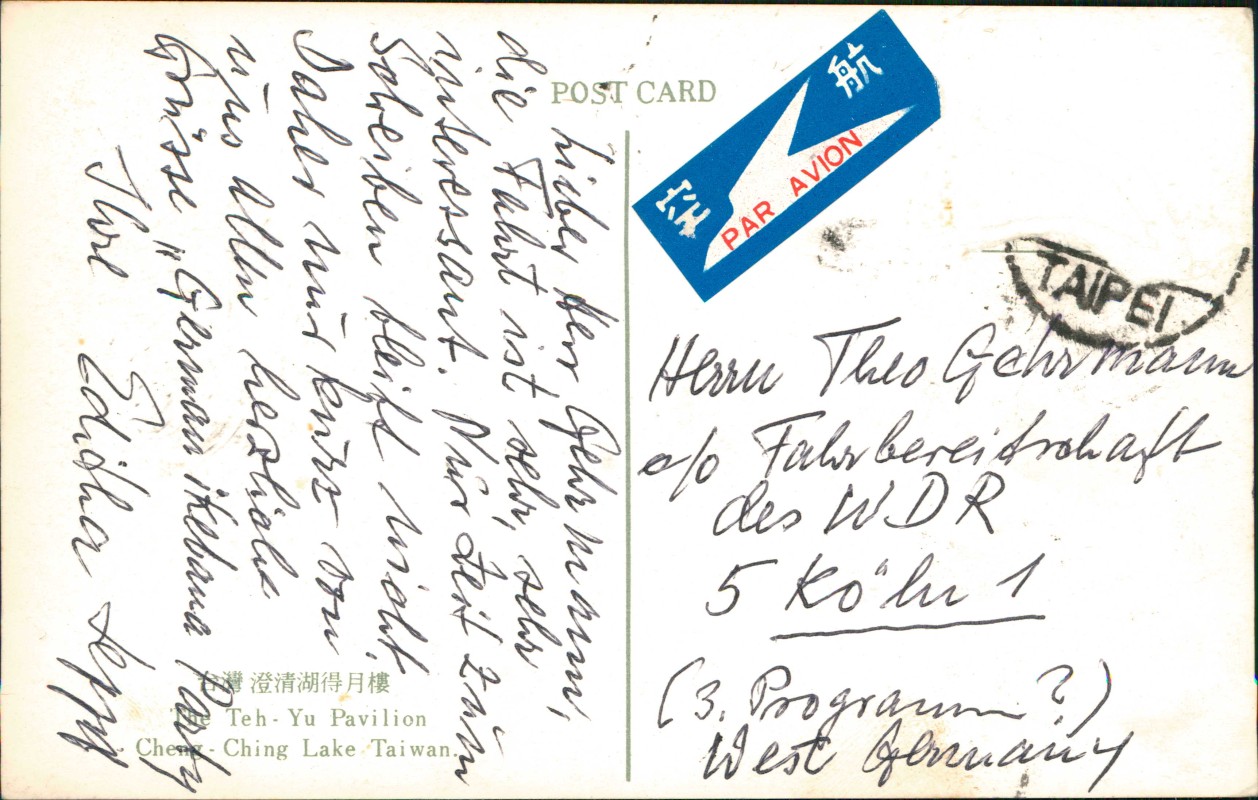 POST CARD
Lieber Herr Gehrmann,
die Fahrt ist sehr, sehr
interessant. Nur Zeit zum
Schreiben bleibt nicht.
Daher nur kurz von
uns allen herzliche
Grüsse "German Ikebana Party
Ihre Editha Leppy
航空
PAR AVION
TAIPEI
Herrn Theo Gehrmann
c/o Fahrbereitschaft
des WDR
5 Köln 1
(3. Programm?)
West Germany
台灣 澄清湖得月樓
The Teh-Yu Pavilion
Cheng-Ching Lake Taiwan.